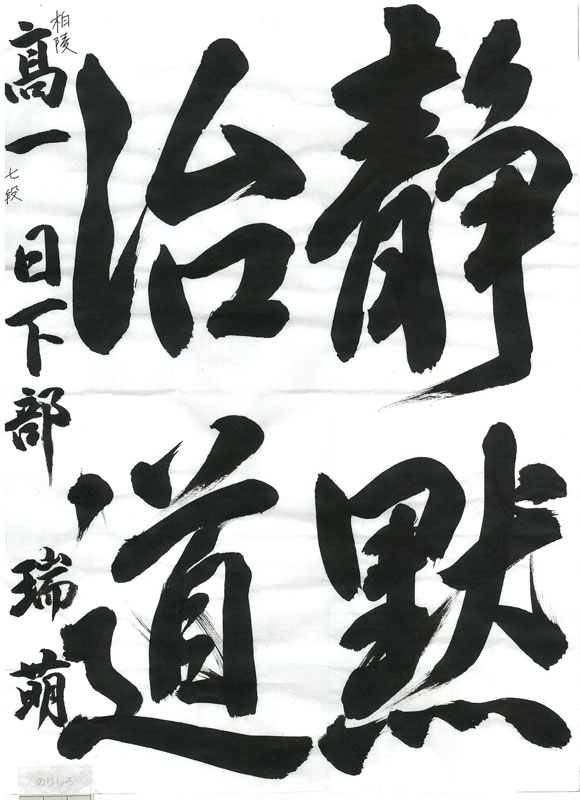 静默
治道
柏陵
高一 七段 日下部 瑞萌
のりしろ